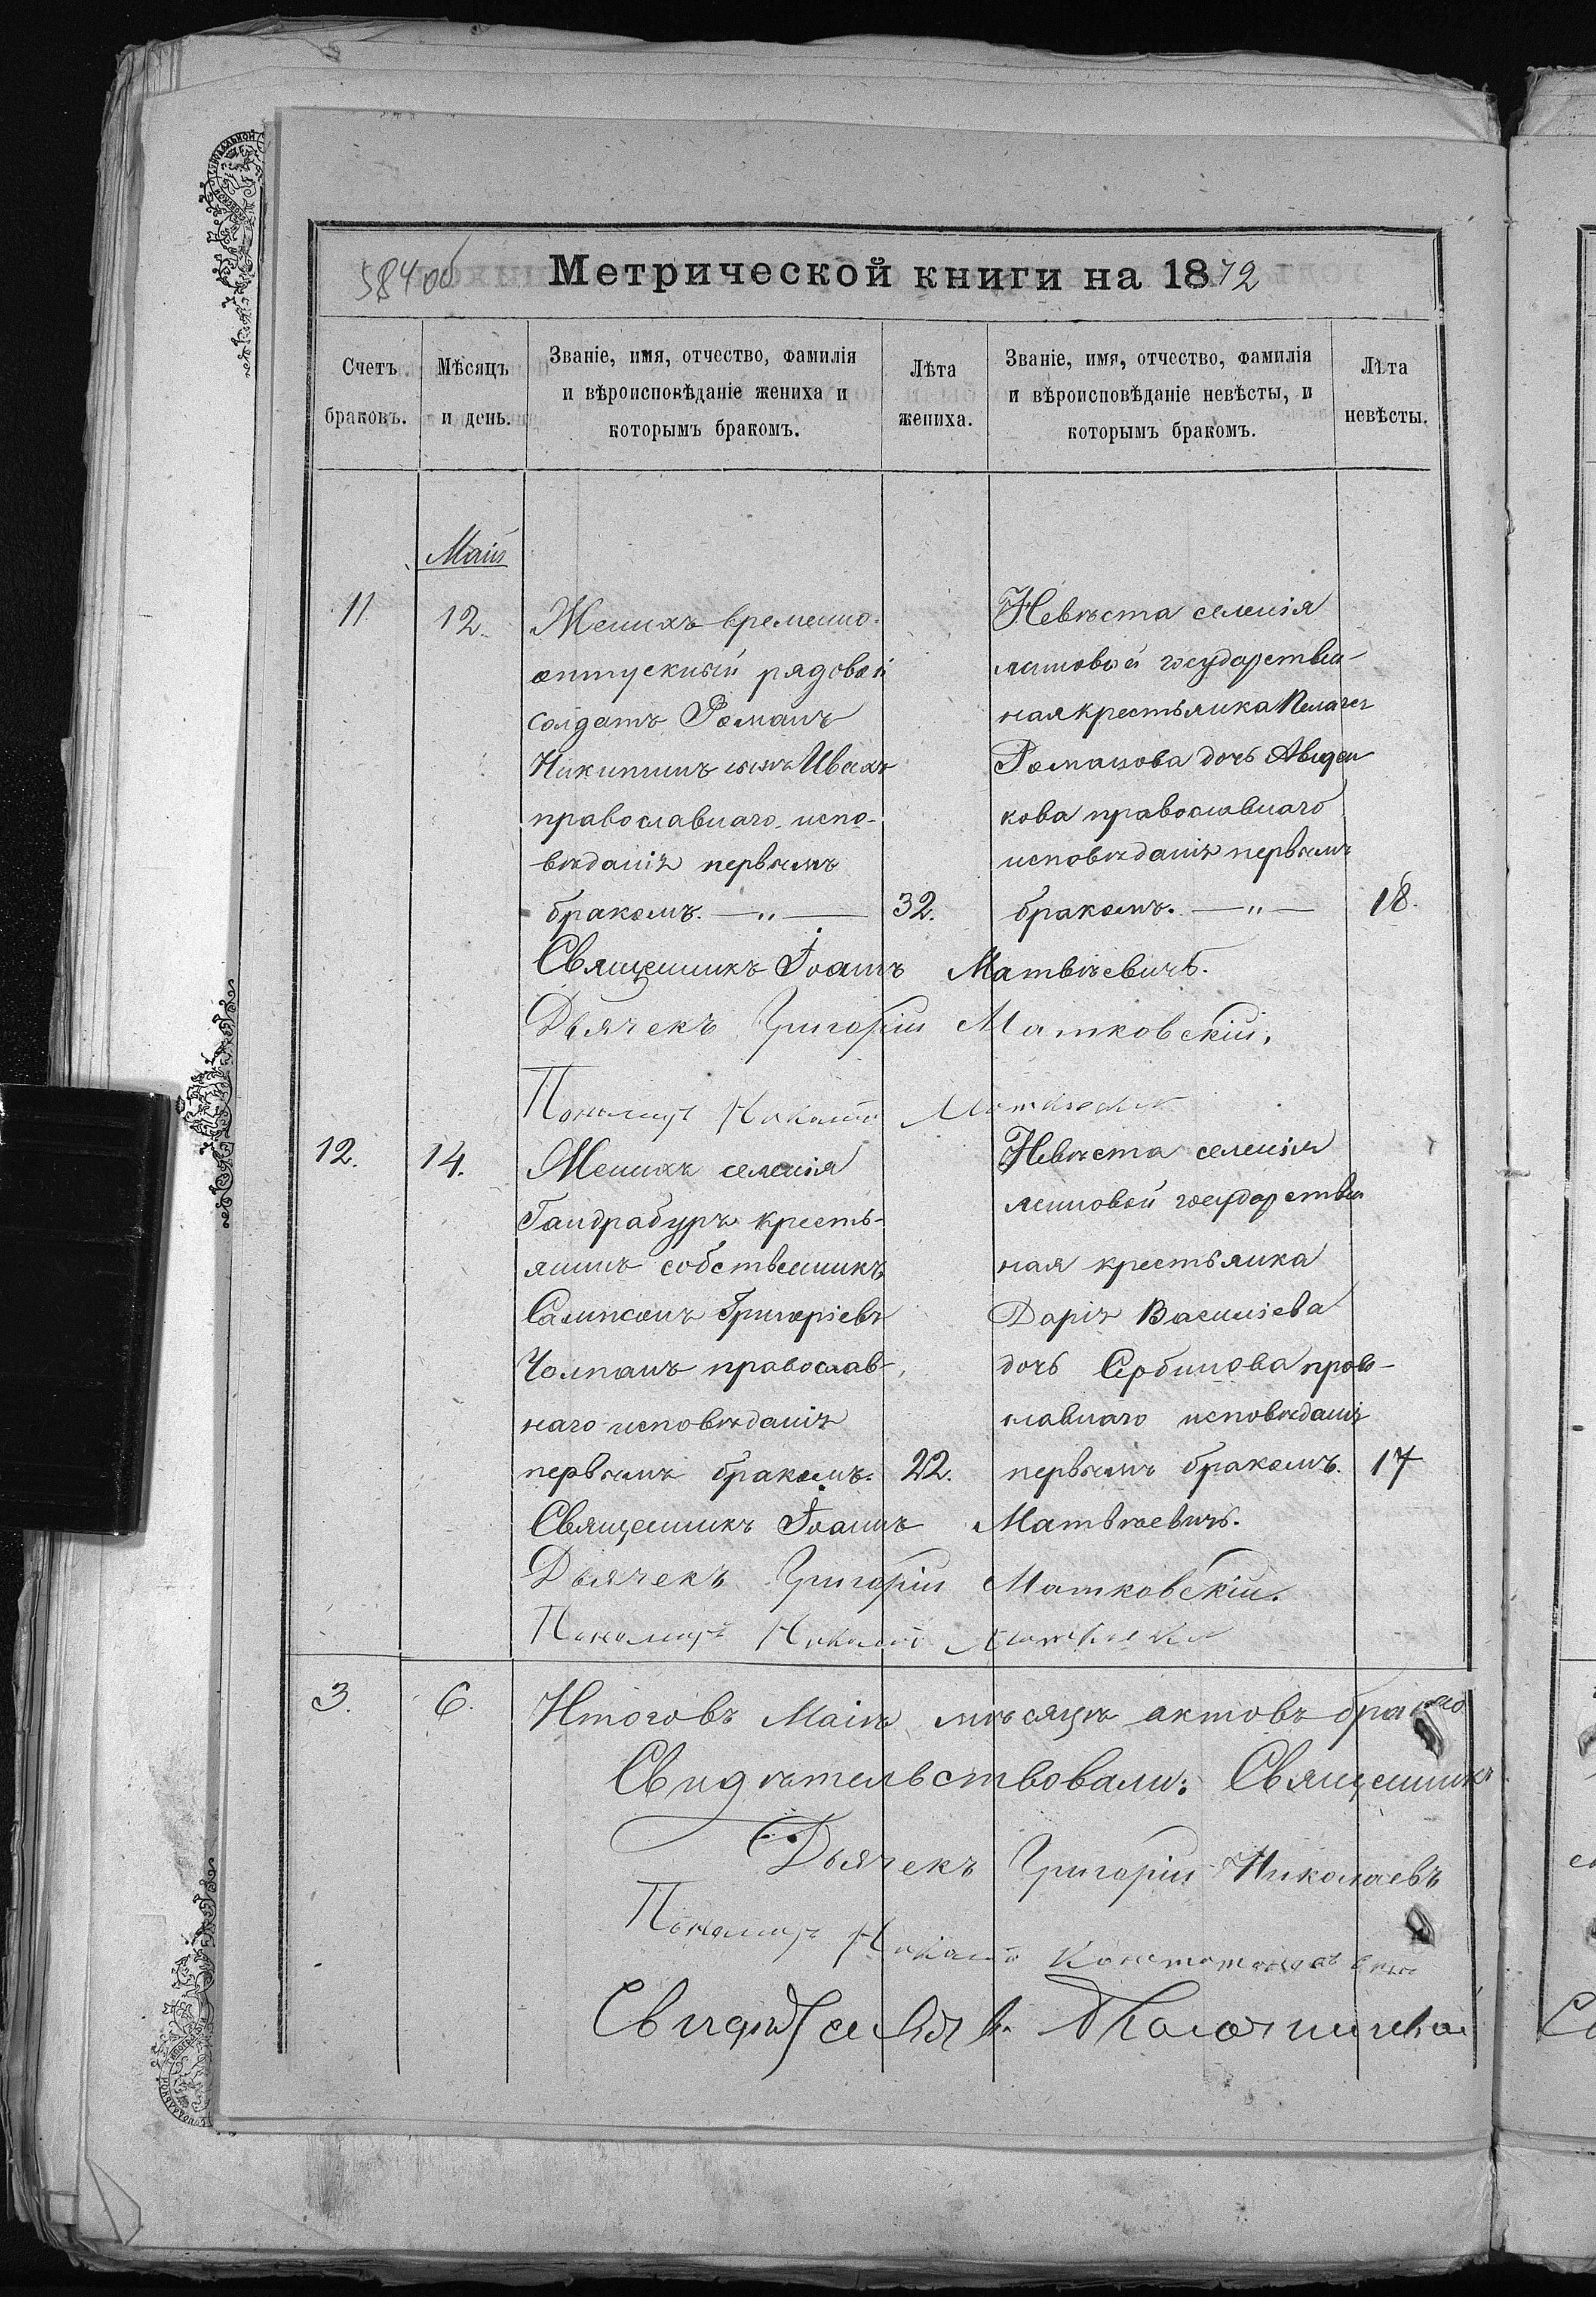 584об Метрической книги на 1872
Счетъ браковъ.
Мѣсяцъ и день.
Званіе, имя, отчество, фамилія
и вѣроисповѣданіе жениха и
которымъ бракомъ.
Лѣта жениха.
Званіе, имя, отчество, фамилія
и вѣроисповѣданіе невѣсты, и
которымъ бракомъ.
Лѣта невѣсты.
Май
11
12.
Женихъ временно-
отпускный рядовой
солдатъ Романъ
Никитинъ сынъ Ивахъ
православнаго испо-
вѣданія первымъ
бракомъ. —"— 32.
Невѣста селенія
Ясиновой государствен-
ная крестьянка Пелагея
Романова дочь Авидеи-
кова православнаго
исповѣданія первымъ
бракомъ. —"— 18.
Священникъ Іоаннъ Матвѣевичъ.
Дьячекъ Григорій Матковскій.
Пономарь
12.
14.
Женихъ селенія
Гандрабуръ кресть-
янинъ собственникъ
Сампсонъ Григоріевъ
Чолпанъ православ-
наго исповѣданія
первымъ бракомъ. 22.
Невѣста селенія
Ясиновой государствен
ная крестьянка
Дарія Василіева
дочь Сербинова право-
славнаго исповѣданія
первымъ бракомъ. 17
Священникъ Іоаннъ Матвѣевичъ.
Дьячекъ Григорій Матковскій.
Пономарь
3. 6. Итого въ Маіѣ мѣсяцѣ актовъ брако
Свидѣтельствовали: Священникъ
Дьячекъ Григорій Николаевъ
Пономарь